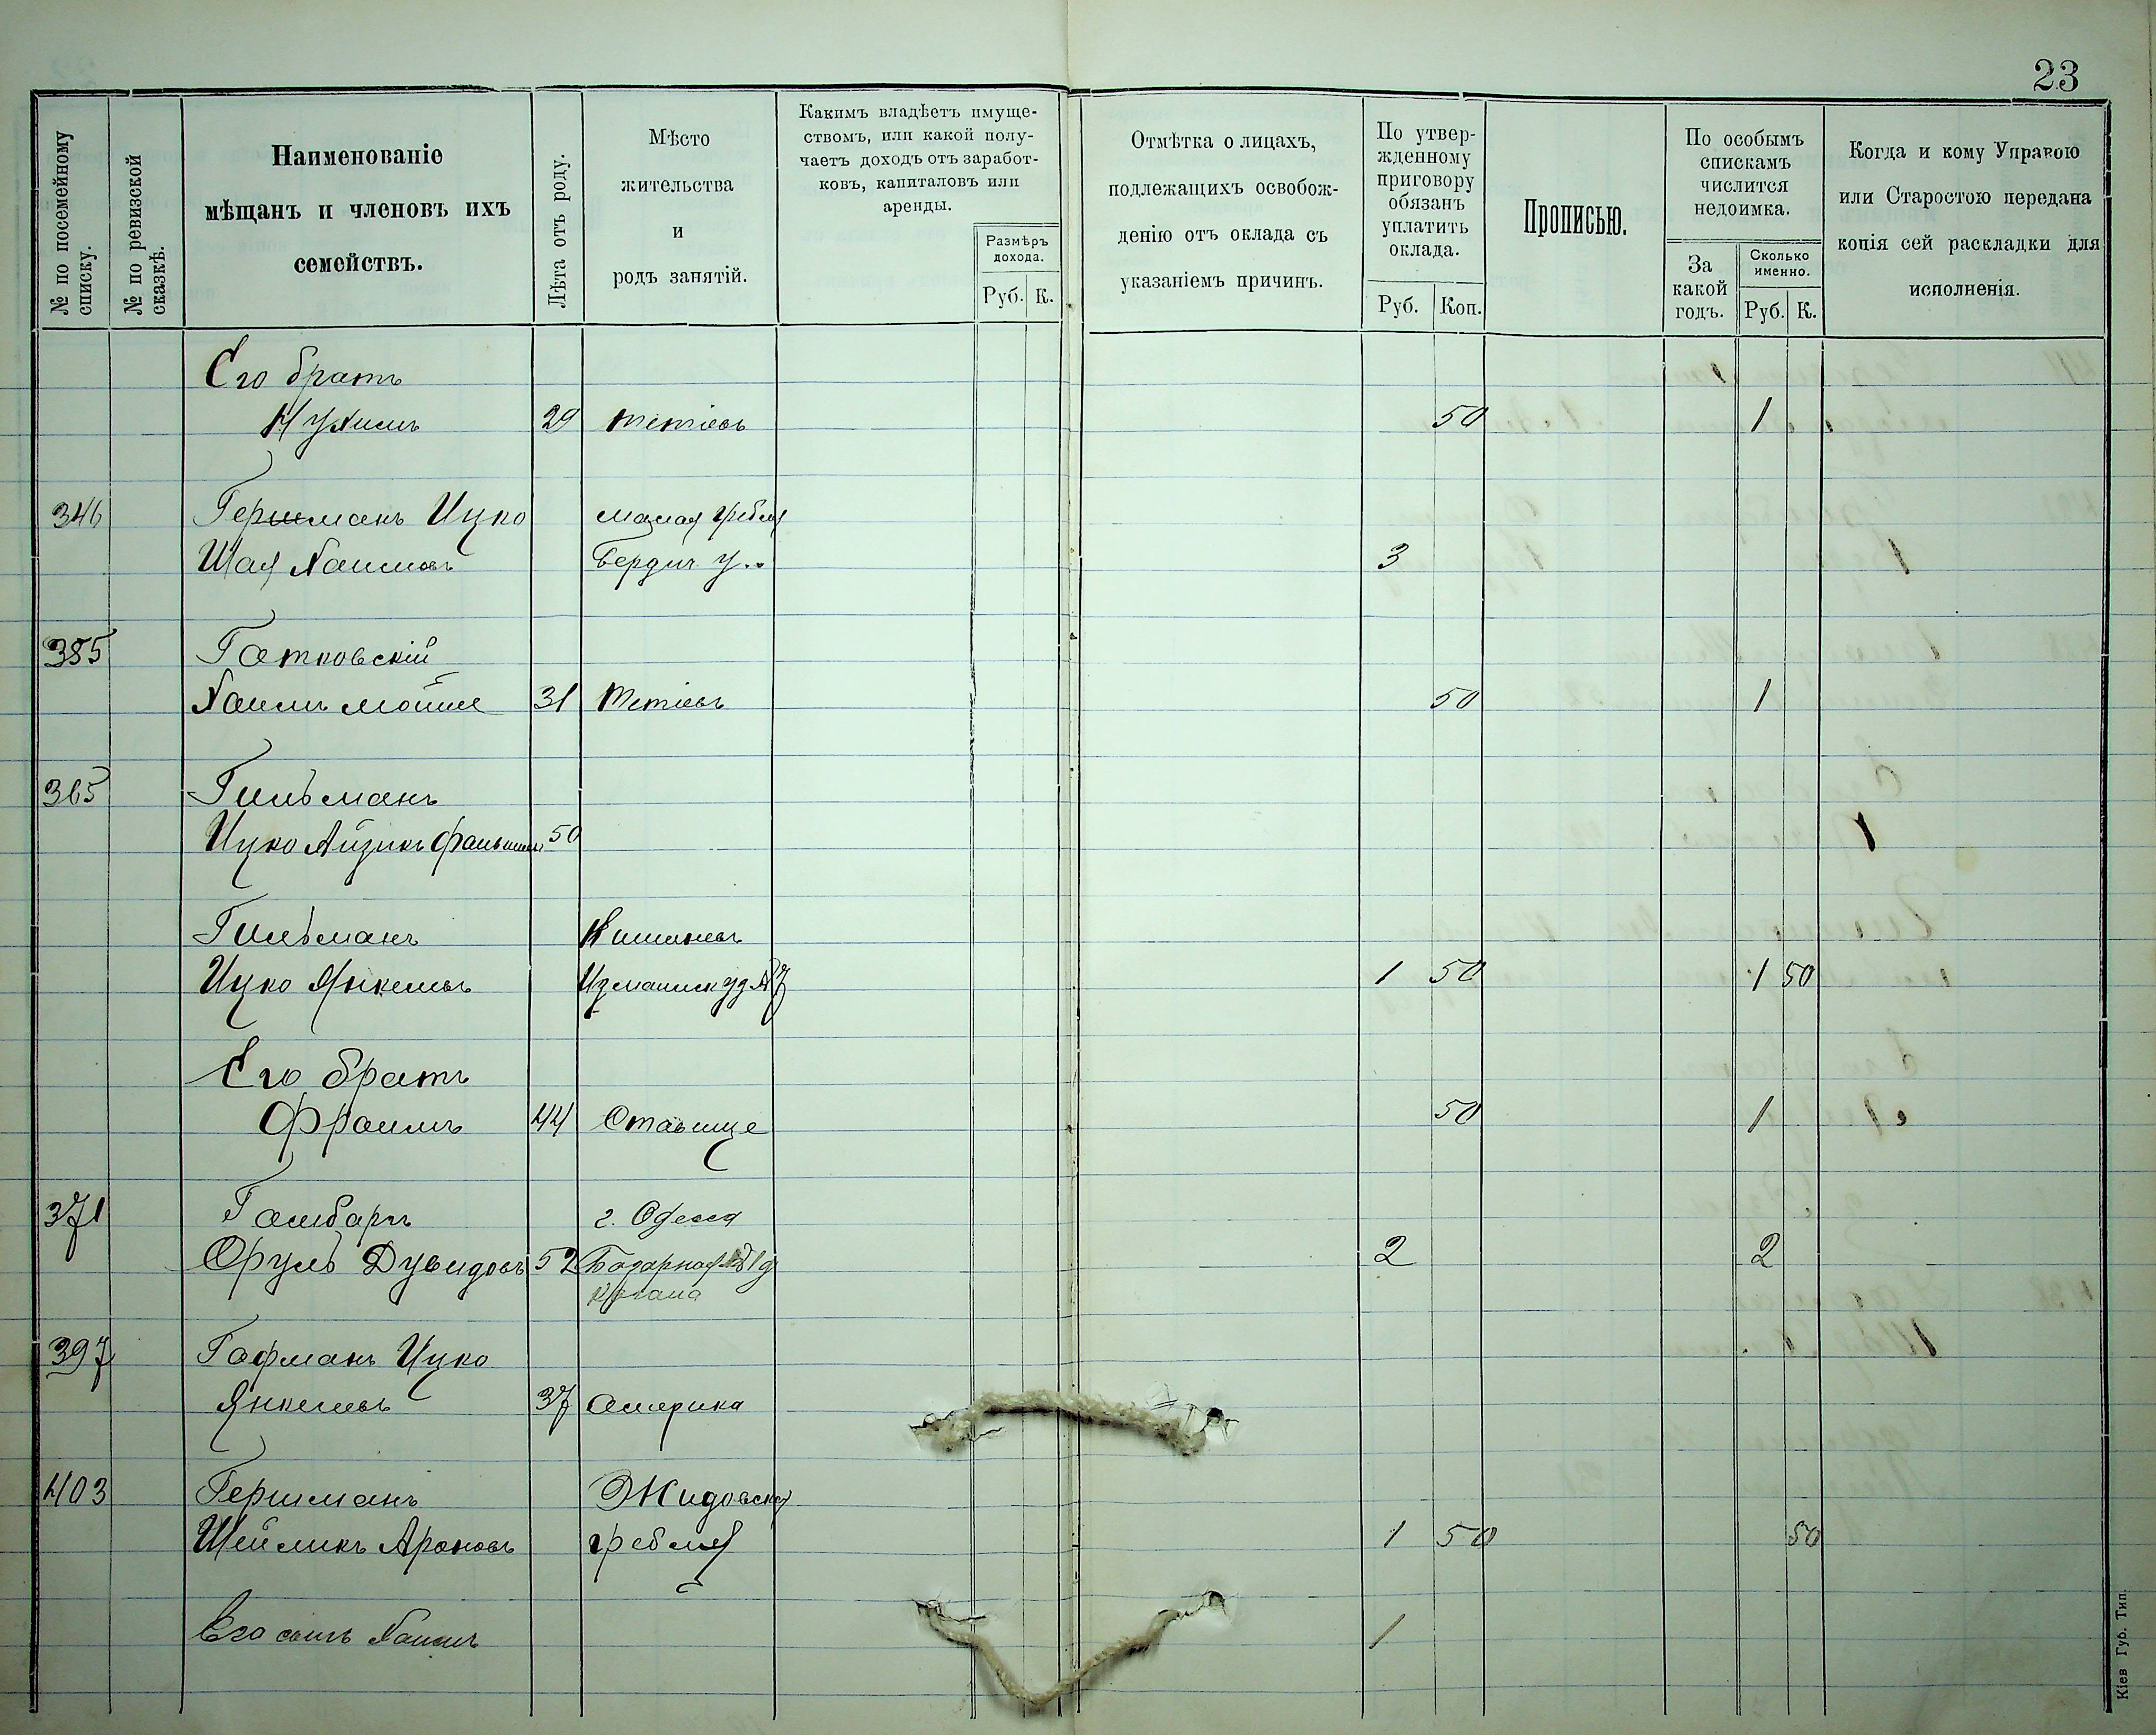 23
№ по посемейному списку.
№ по ревизской сказкѣ.
Наименованіе
мѣщанъ и членовъ ихъ
семействъ.
Лѣта отъ роду.
Мѣсто
жительства
и
родъ занятій.
Какимъ владѣетъ имуще-
ствомъ, или какой полу-
чаетъ доходъ отъ заработ-
ковъ, капиталовъ или
аренды.
Размѣръ
дохода.
Руб. К.
Отмѣтка о лицахъ,
подлежащихъ освобож-
денію отъ оклада съ
указаніемъ причинъ.
По утвер-
жденному
приговору
обязанъ
уплатить
оклада.
Руб. Коп.
Прописью.
По особымъ
спискамъ
числится
недоимка.
За
какой
годъ.
Сколько
именно.
Руб. К.
Когда и кому Управою
или Старостою передана
копія сей раскладки для
исполненія.
Его братъ
Нухимъ 29 Тетіевъ 50 1
346 Гершманъ Ицко Малая Гребля
Шая Хаимовъ Бердич у. 3
385 Гатковскій
Хаимъ Мошке 31 Тетіевъ 50 1
365 Гильманъ
Ицко Айзикъ 50
Гильманъ Кишиневъ
Ицко Янкелевъ 1 50 1 50
Его братъ
Фроимъ 44 Ставище 50 1
371 Гамбаръ г. Одесса
Сруль Дувидовъ 52 Базарная 2 2
397 Гофманъ Ицко
Янкелевъ 37 Америка
403 Гершманъ Жидовска
Шеиликъ Ароновъ гребля 1 50 50
Его сынъ Хаимъ 1
Кіев Губ. Тип.